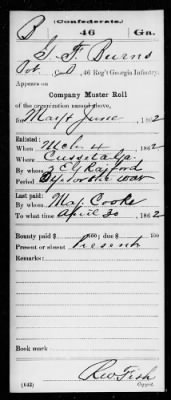 (Confederate.)
B 46 Ga.
G. F. Burns
Pvt. Co. , 46 Reg't Georgia Infantry.
Appears on
Company Muster Roll
of the organization named above,
for May & June, 1862
Enlisted:
When Mch 4, 1862
Where Cusseta Ga.
By whom E. G. Raiford
Period 3 yrs or the war
Last paid:
By whom Maj. Cooke
To what time April 30, 1862
Bounty paid $ 100; due $ 100
Present or absent Present
Remarks:
Book mark:
(642) Copyist.